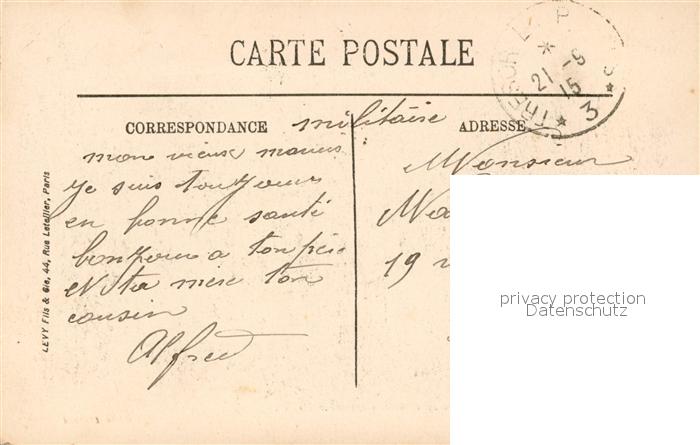 CARTE POSTALE
TRESOR
21 -9
15
3
CORRESPONDANCE
militaire
ADRESSE
mon vieux
Je suis toujours
en bonne santé
bonjour a ton père
et ta mère ton
cousin
Alfred
Monsieur
19
LEVY Fils & Cie, 44, Rue Letellier, Paris
privacy protection
Datenschutz